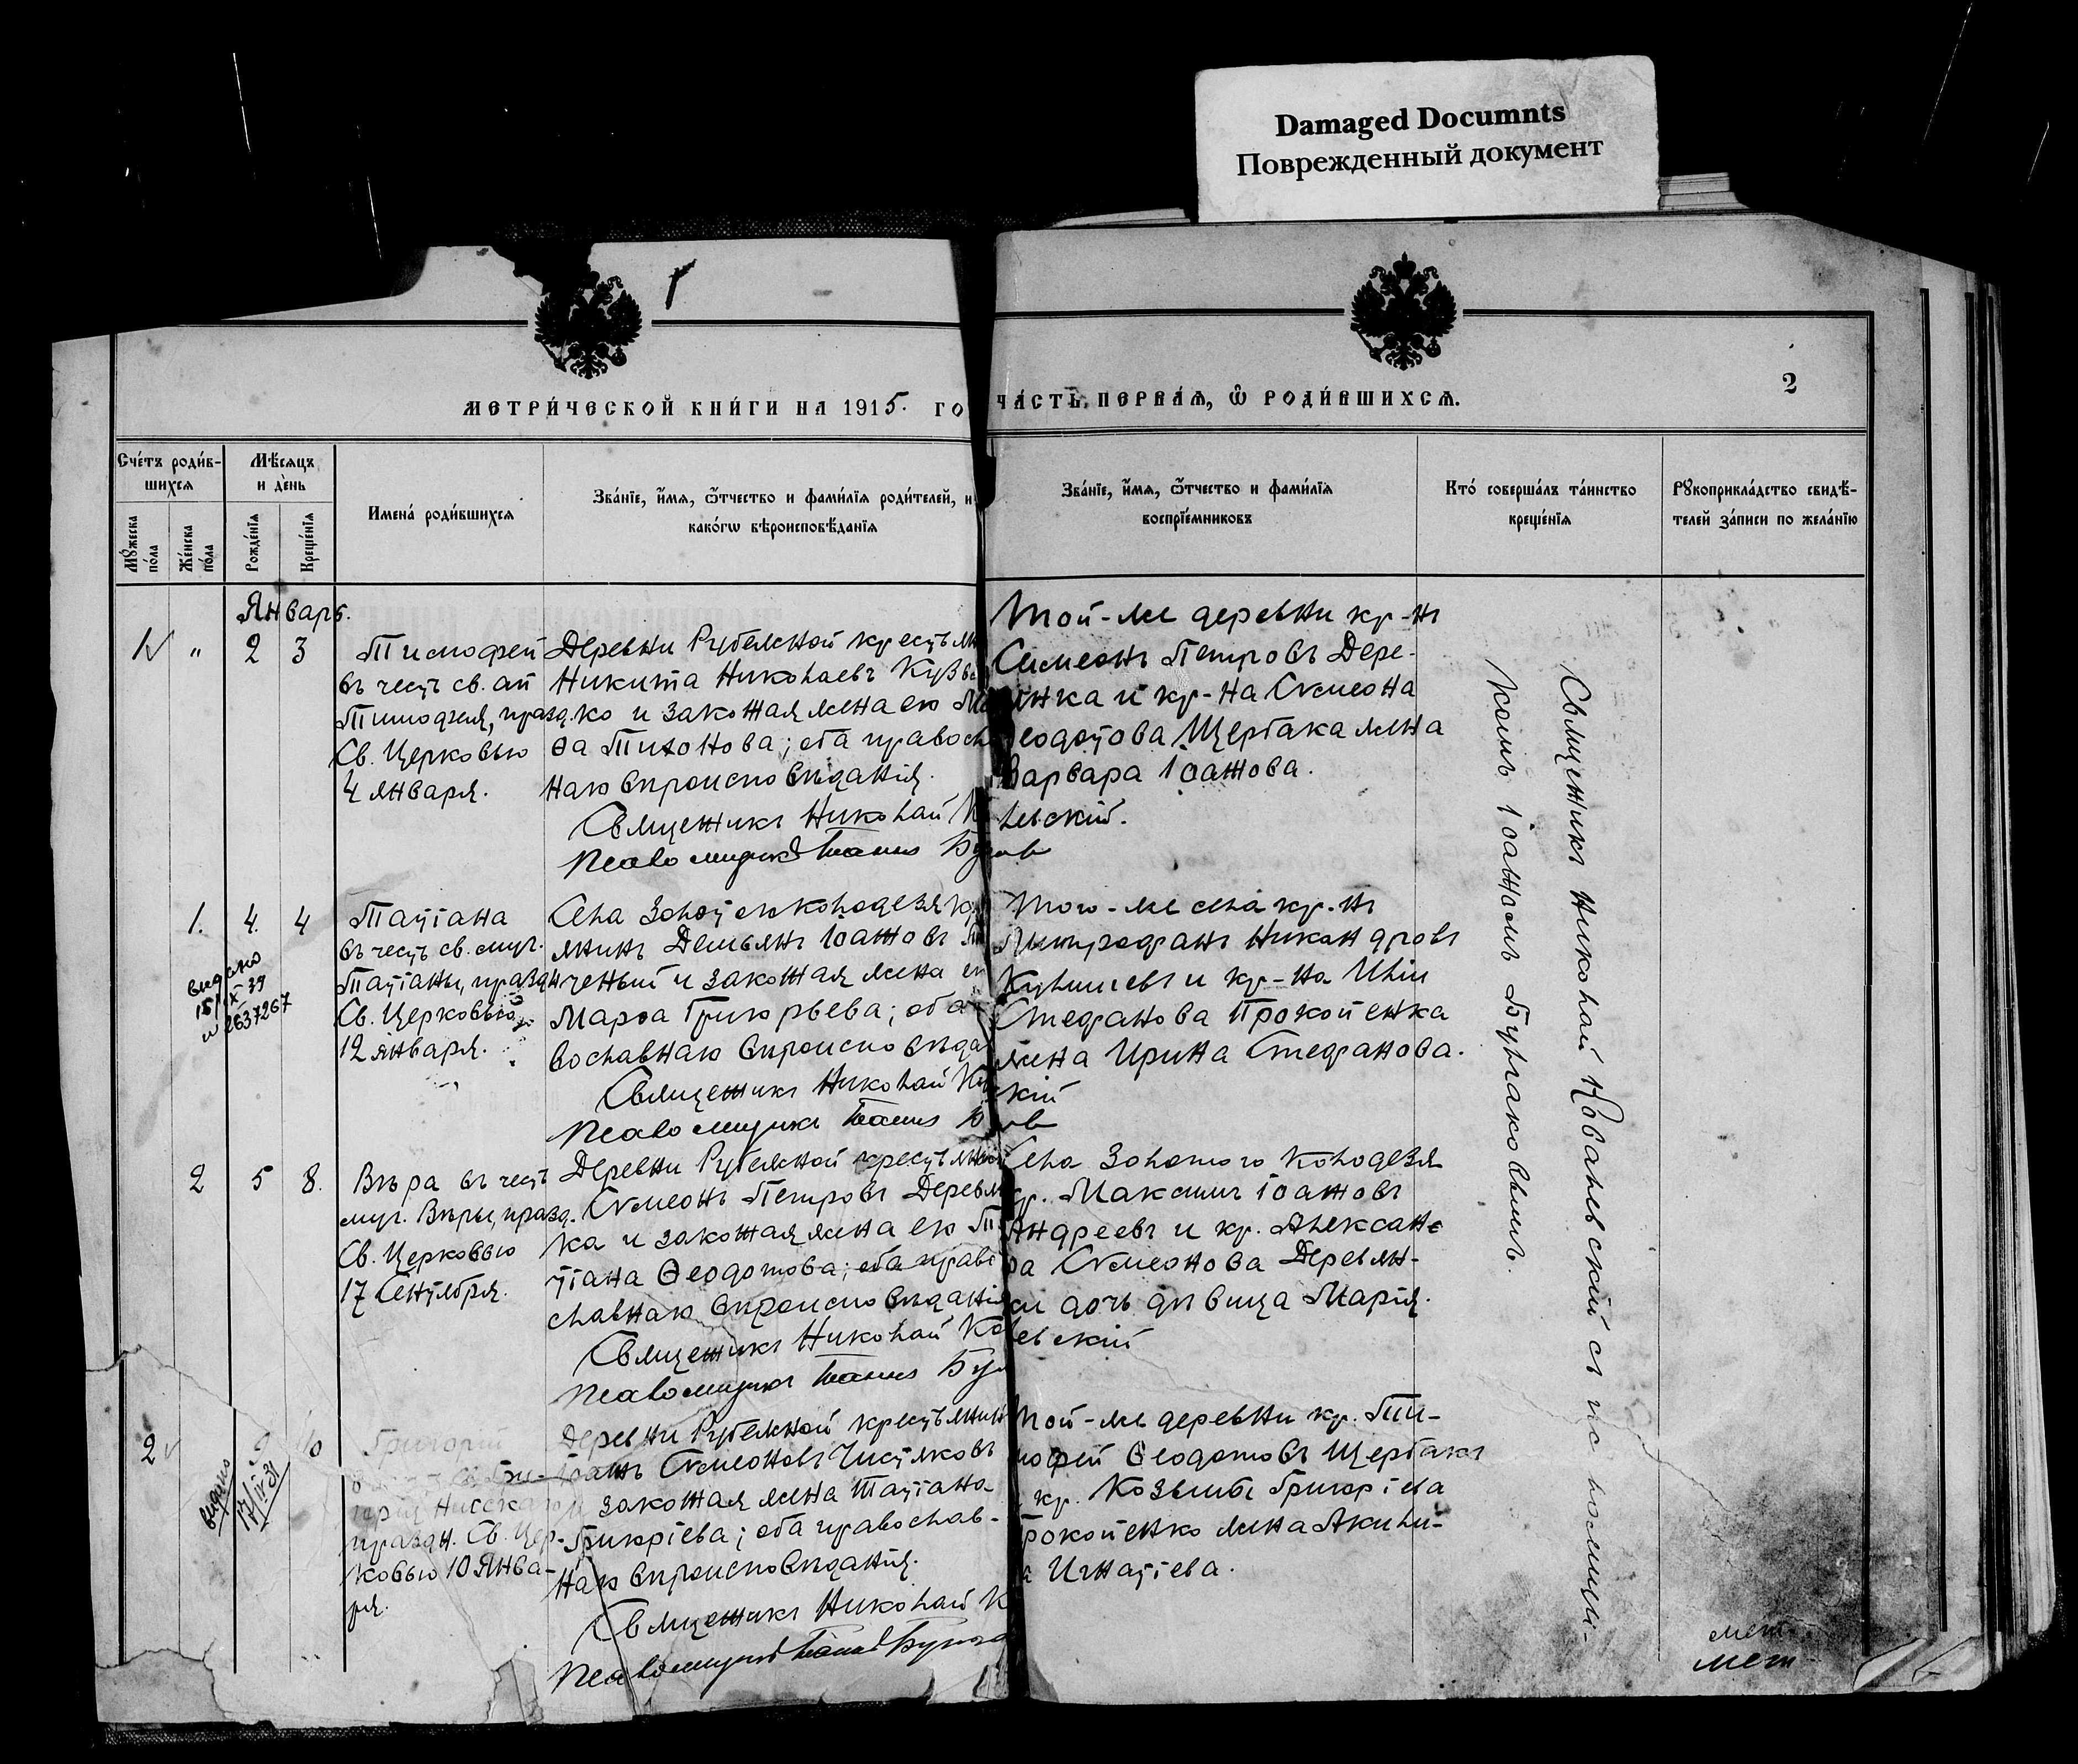 Damaged Documnts
Поврежденный документ
МЕТРИ́ЧЕСКОЙ КНИ́ГИ НА 1915. ГО
ЧА́СТЬ ПЕРВАѦ, Ѡ РОДИ́ВШИХСѦ.
2
Сче́тъ роди́в-
шихсѧ
Мѣ́сѧцъ
и де́нь
Мꙋ́жеска по́ла
Же́нска по́ла
Рожде́нїѧ
Креще́нїѧ
Имена́ роди́вшихсѧ
Зва́нїе, и҆́мѧ, ѻ҆́тчество и фами́лїѧ роди́телей, и
како́гѡ вѣроисповѣ́данїѧ
Зва́нїе, и҆́мѧ, ѻ҆́тчество и фами́лїѧ
воспрїе́мниковъ
Кто́ соверша́лъ та́инство
креще́нїѧ
Рꙋкоприкла́дство свидѣ́-
телей за́писи по жела́нїю
Январь.
1 " 2 3
Тимофей
въ честь св. ап
Тимофея, празд.
Св. Церковью
4 января.
Деревни Рубежной крестьян
Никита Николаевъ
ко и законная жена его
ѳа Тихонова; оба правосл
наго вѣроисповѣданія.
Священникъ Николай
Псаломщикъ Іоаннъ
Той-же деревни кр-нъ
Симеонъ Петровъ Дере-
янка и кр-на Симеона
Ѳеодотова Щербака жена
Варвара Іоаннова.
льскій.
1. 4. 4
выдано
Татіана
въ честь св. муч.
Татіаны, праздн
Св. Церковью
12 января.
Села Золотого Колодезя кр
янинъ Демьянъ Іоанновъ
ченый и законная жена ег
Марѳа Григорьева; оба
вославнаго вѣроисповѣда
Священникъ Николай
Псаломщикъ Іоаннъ
Того-же села кр-нъ
Митрофанъ Никандровъ
и кр-на Иліи
Стефанова Прокопенка
жена Ирина Стефанова.
кій
2 5 8.
Вѣра въ честь
муч. Вѣры, празд.
Св. Церковью
17 Сентября.
Деревни Рубежной крестьянинъ
Симеонъ Петровъ Деревян
ка и законная жена его
тіана Ѳеодотова; оба право
славнаго вѣроисповѣданія
Священникъ Николай Ков
Псаломщикъ Іоаннъ Бул
Села Золотого Колодезя
кр. Максимъ Іоанновъ
Андреевъ и кр. Александ
ра Симеонова Деревян-
ки дочь дѣвица Марія.
евскій
2 9 10
выдано
17/IV 31
Григорій
Гри-
горія Нисскаго
праздн. Св. Цер-
ковью 10 Янва-
ря.
Деревни Рубежной крестьянин
Симеоновъ Чистяковъ
и законная жена Татіана
Григоріева; оба православ-
наго вѣроисповѣданія.
Священникъ Николай К
Псаломщикъ Іоаннъ Булга
Той-же деревни кр. Ти-
мофей Ѳеодотовъ Щербакъ
кр. Козьмы Григоріева
Прокопенко жена Акили-
а Игнатіева.
Священникъ Николай Ковалевскій съ псаломщи-
комъ Іоанномъ Булгаковымъ.